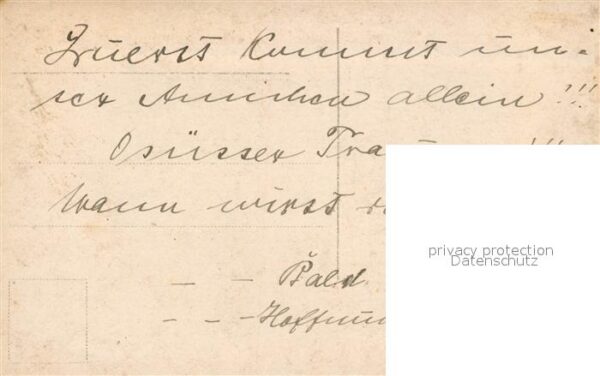 Zuerst kommt un-
ser Annchen allein!!!
O süsser Tra !!!
Wann wirst
— — Bald
— — — Hoffnun
privacy protection
Datenschutz